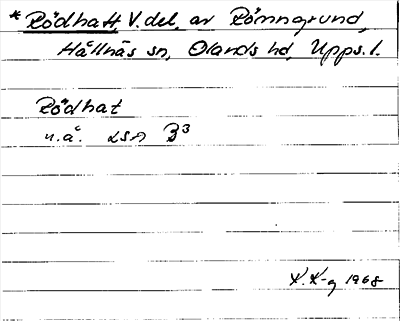 * Rödhatt V. del. av Rönngrund,
Hållnäs sn, Olands hd, Upps. l.
Rödhat
n.å. LSA B³
K.K-g 1968